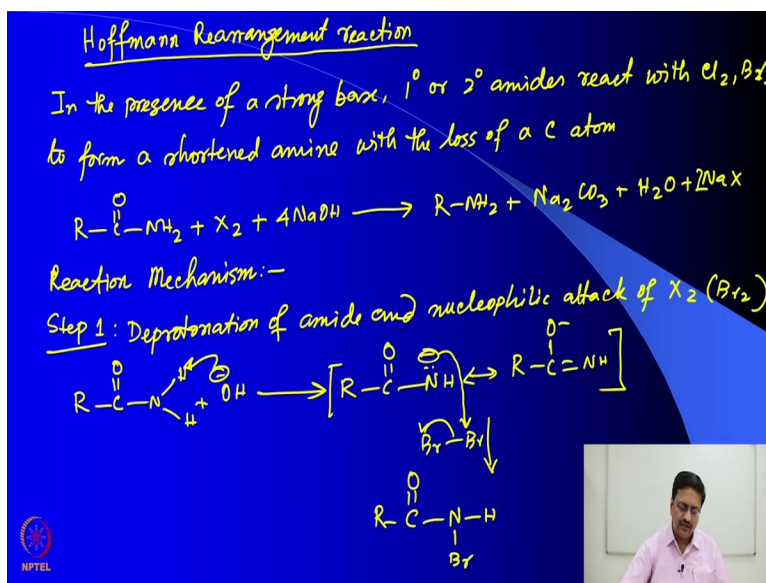 Hoffmann Rearrangement reaction
In the presence of a strong base, 1° or 2° amides react with Cl2, Br2
to form a shortened amine with the loss of a C atom
O
R–C–NH2 + X2 + 4NaOH ⟶ R–NH2 + Na2CO3 + H2O + 2NaX
Reaction Mechanism:–
Step 1: Deprotonation of amide and nucleophilic attack of X2 (Br2)
O H ⊖ O ⊖ O⁻
R–C–N + OH ⟶ [R–C–N̈H ⟷ R–C=NH]
H
Br–Br
O
R–C–N–H
Br
NPTEL